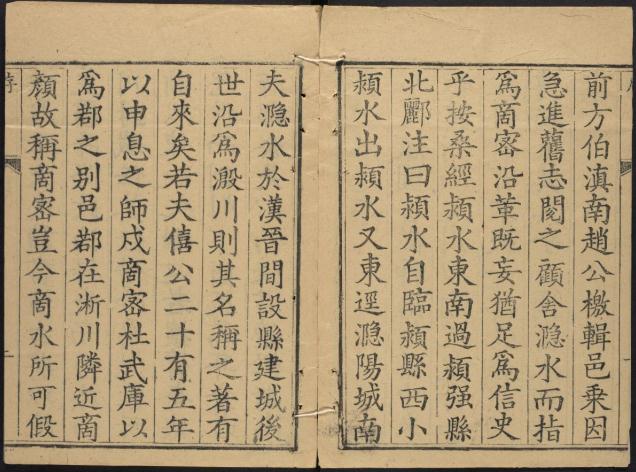 前方伯滇南趙公檄輯邑乘因
急進舊志閱之顧舍㶏水而指
為商密沿革既妄猶足為信史
乎按桑經潁水東南過潁强縣
北酈注曰潁水自臨潁縣西小
潁水出潁水又東逕㶏陽城南
夫㶏水於漢晉間設縣建城後
世沿為溵川則其名稱之著有
自來矣若夫僖公二十有五年
以申息之師戍商密杜武庫以
為鄀之别邑鄀在淅川隣近商
顏故稱商密豈今商水所可假
序